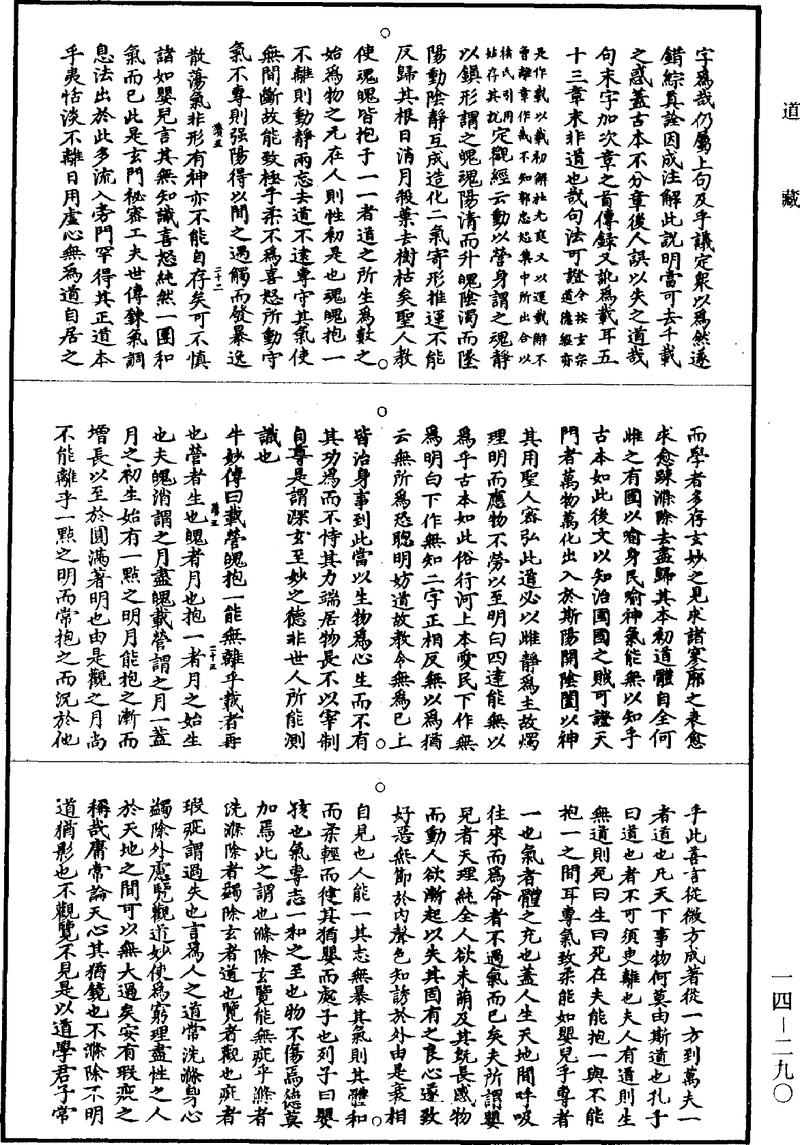 道藏
一四—二九〇
字爲哉仍屬上句及乎議定衆以爲然遂
錯綜真詮因成注解此說明當可去千載
之惑蓋古本不分章後人誤以失之道哉
句末字加次章之首傳録又訛爲載耳五
十三章末非道也哉句法可證今按玄宗道德經亦
是作載以載初解杜光庭又以運載解不
曾離章作哉不知郭忠恕集中所出合以
褚氏引用姑存其抗定觀經云動以營身謂之魂靜
以鎮形謂之魄魂陽清而升魄陰濁而墜
陽動陰靜互成造化二氣寄形推運不能
反歸其根日消月殺葉去樹枯矣聖人教
使魂魄皆抱于一一者道之所生爲數之
始爲物之元在人則性初是也魂魄抱一
不離則動靜兩忘去道不遠專守其氣使
無間斷故能致極乎柔不爲喜怒所動守
氣不專則强陽得以間之遇觸而發暴逸
散蕩氣非形有神亦不能自存矣可不慎
諸如嬰兒言其無知識喜怒純然一團和
氣而已此是玄門秘密工夫世傳鍊氣調
息法出於此多流入旁門罕得其正道本
乎夷恬淡不離日用虛心無爲道自居之
而學者多存玄妙之見求諸寥廓之表愈
求愈踈滌除去盡歸其本初道體自全何
疵之有國以喻身民喻神氣能無以知乎
古本如此後文以知治國國之賊可證天
門者萬物萬化出入於斯陽開陰闔以神
其用聖人密弘此道必以雌靜爲主故燭
理明而應物不勞以至明白四達能無以
爲乎古本如此俗行河上本愛民下作無
爲明白下作無知二字正相反無以爲猶
云無所爲恐聰明妨道故教令無爲已上
皆治身事到此當以生物爲心生而不有
其功爲而不恃其力端居物長不以宰制
自尊是謂深玄至妙之德非世人所能測
識也
牛妙傳曰載營魄抱一能無離乎載者再
也營者生也魄者月也抱一者月之始生
也夫魄消謂之月盡魄載營謂之月一蓋
月之初生始有一點之明月能抱之漸而
增長以至於圓滿著明也由是觀之月尚
不能離乎一點之明而常抱之而況於他
乎此善言從微方成著從一方到萬夫一
者道也凡天下事物何莫由斯道也孔子
曰道也者不可須臾離也夫人有道則生
無道則死曰生曰死在夫能抱一與不能
抱一之間耳專氣致柔能如嬰兒乎專者
一也氣者體之充也蓋人生天地間呼吸
往來而爲命者不過氣而已矣夫所謂嬰
兒者天理純全人欲未萌及其既長感物
而動人欲漸起以失其固有之良心遂致
好惡無節於內聲色知誘於外由是衰相
自見也人能一其志無暴其氣則其體和
而柔輕而健其猶嬰而處子也列子曰嬰
孩也氣專志一和之至也物不傷焉德莫
加焉此之謂也滌除玄覽能無疵乎滌者
洗滌除者蠲除玄者道也覽者觀也疵者
瑕疵謂過失也言爲人之道常洗滌身心
蠲除外慮覽觀道妙使爲窮理盡性之人
於天地之間可以無大過矣安有瑕疵之
稱哉庸常論天心其猶鏡也不滌除不明
道猶影也不觀覽不見是以道學君子常